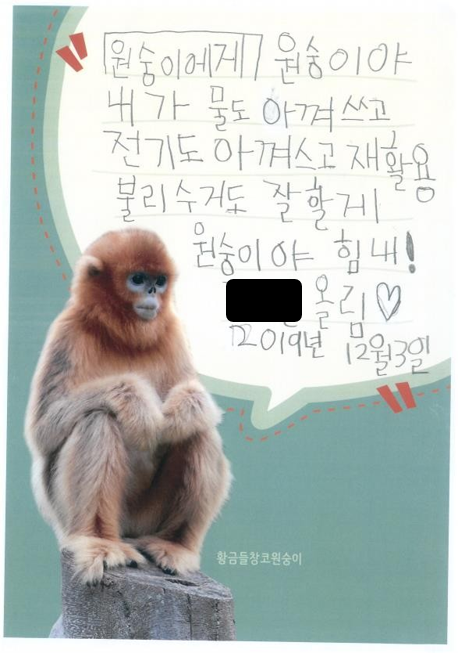 원숭이에게 원숭이야
내가 물도 아껴쓰고
전기도 아껴쓰고 재활용
분리수거도 잘할게
원숭이야 힘내!
올림♡
2019년 12월3일
황금들창코원숭이